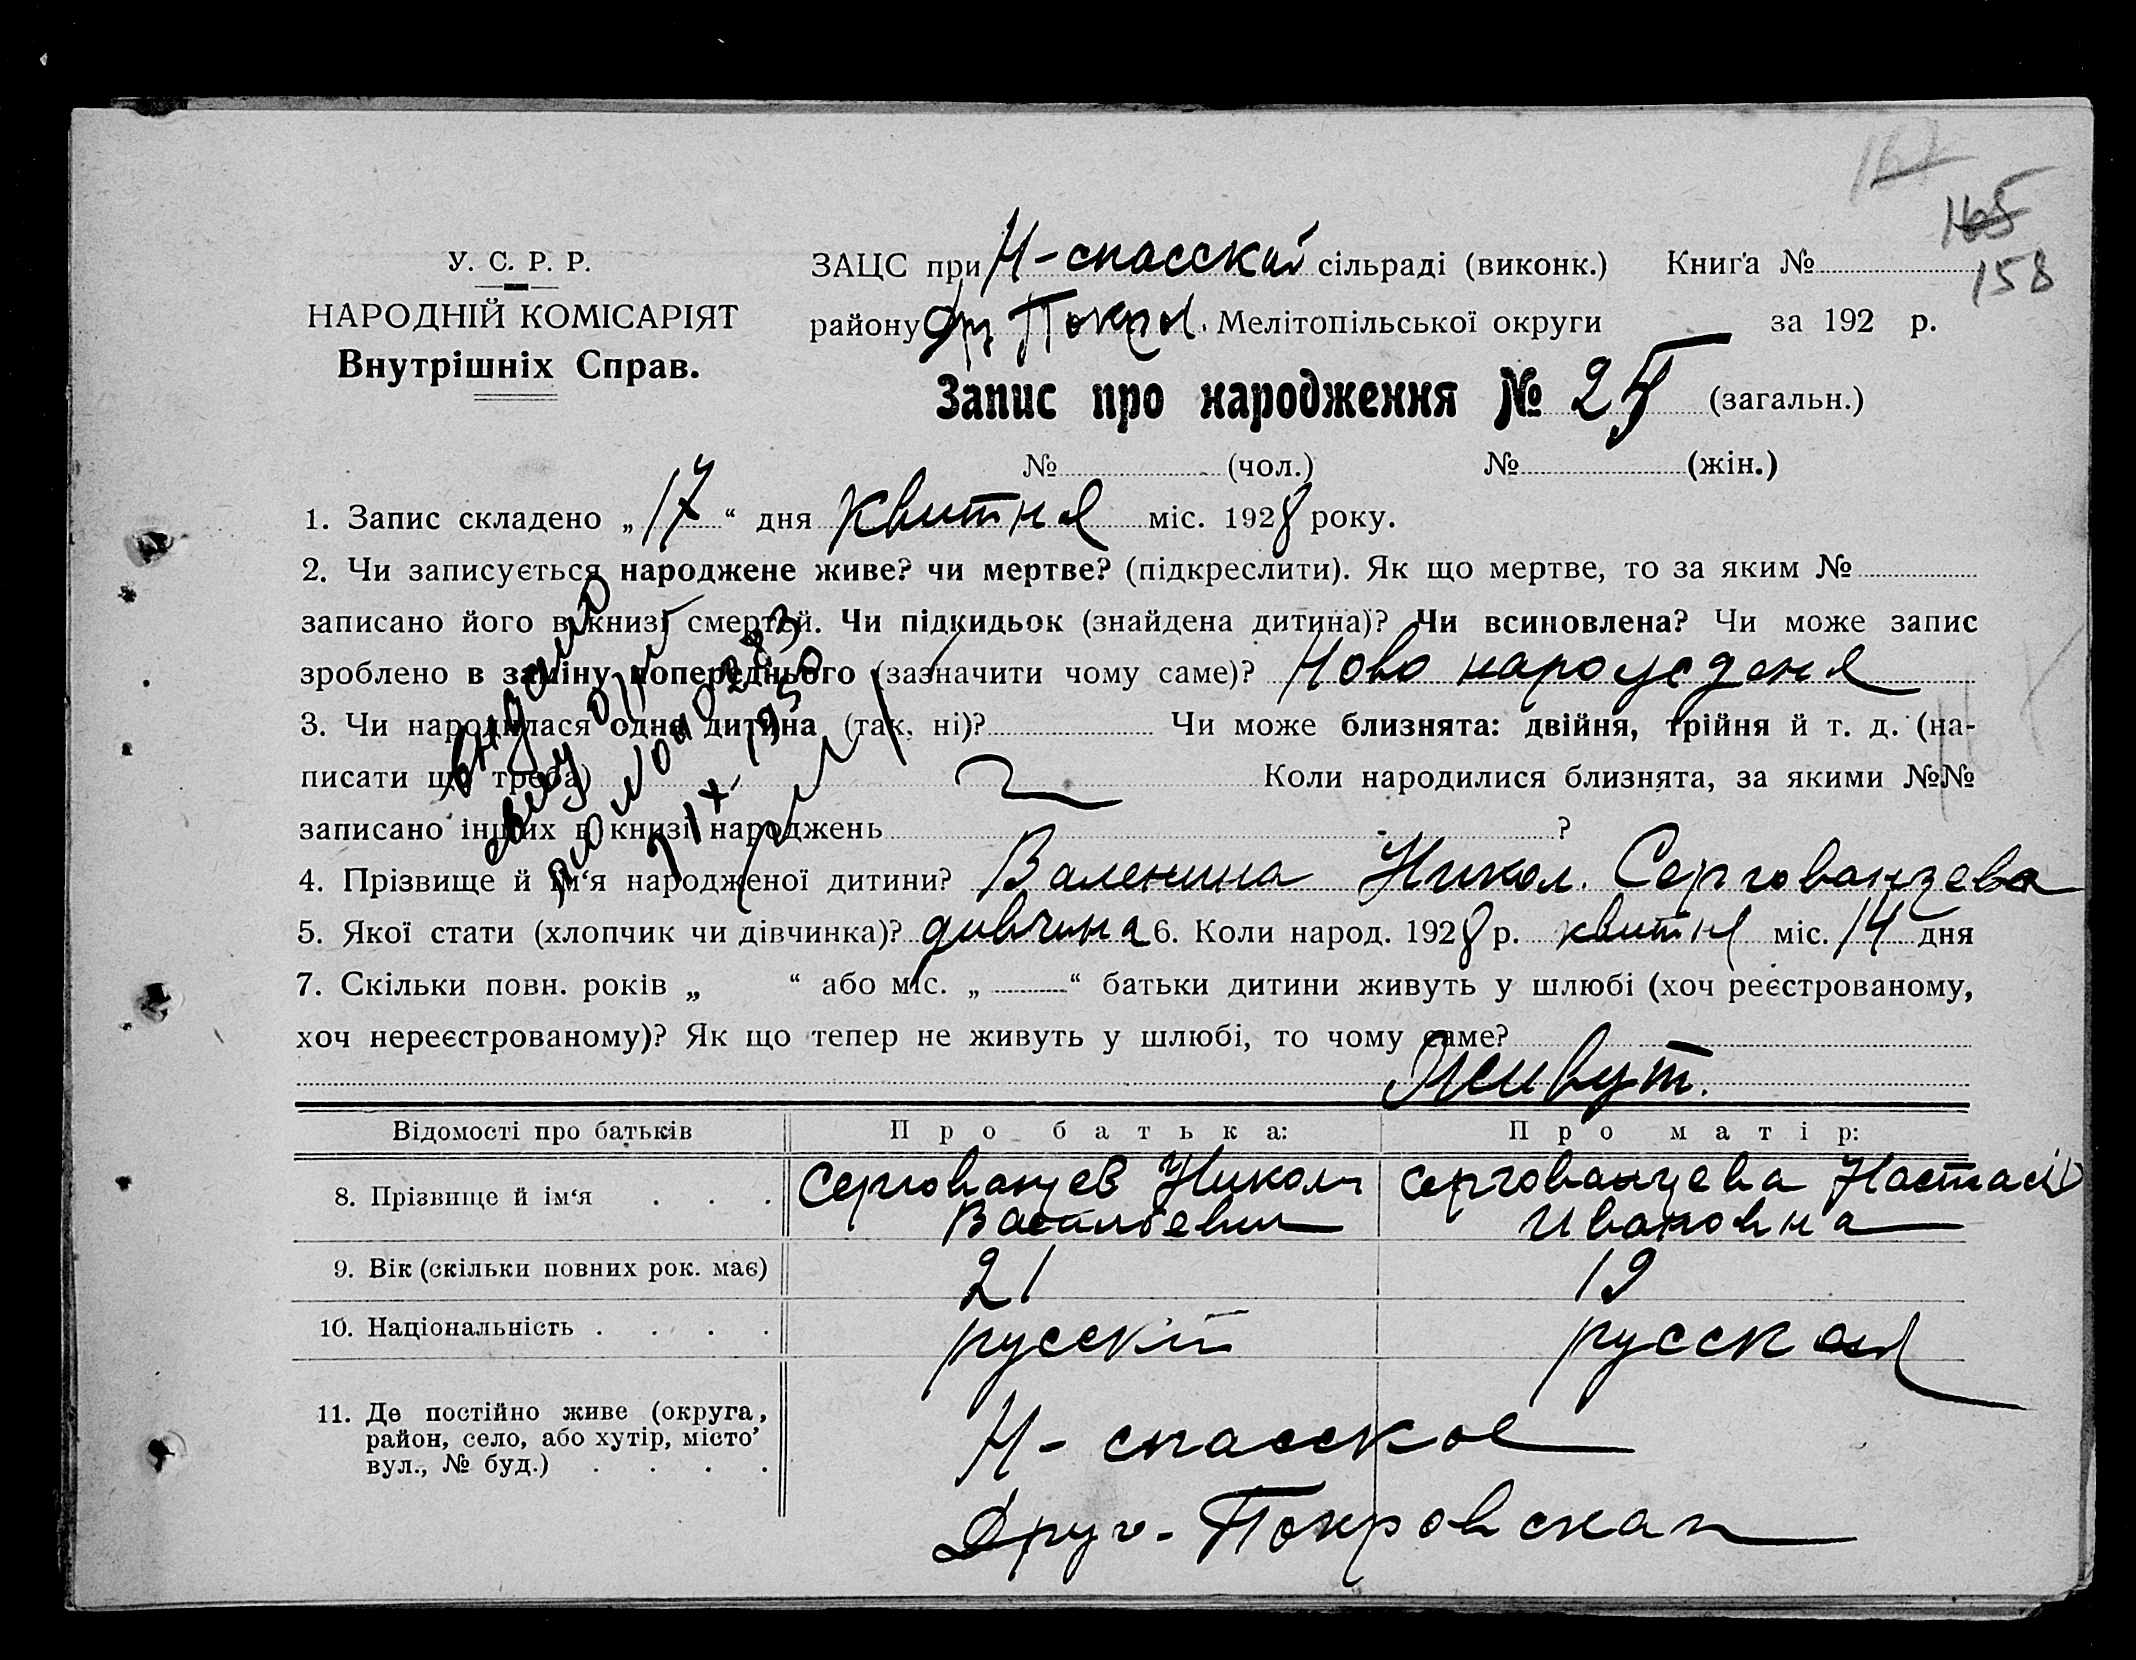 167
165
158
У. С. Р. Р.
НАРОДНІЙ КОМІСАРІЯТ
Внутрішніх Справ.
ЗАЦС при Н-спасский сільраді (виконк.) Книга №
району Др. Покров. Мелітопільської округи за 192 р.
Запис про народження № 25 (загальн.)
№ (чол.) № (жін.)
1. Запис складено „17“ дня Квитня міс. 1928 року.
2. Чи записується народжене живе? чи мертве? (підкреслити). Як що мертве, то за яким №
записано його в книзі смертей. Чи підкидьок (знайдена дитина)? Чи всиновлена? Чи може запис
зроблено в заміну попереднього (зазначити чому саме)? Ново народженя
3. Чи народилася одна дитина (так, ні)? Чи може близнята: двійня, трійня й т. д. (на-
писати що треба) Коли народилися близнята, за якими №№
записано інших в книзі народжень ?
4. Прізвище й ім‘я народженої дитини? Валенина Никол. Сергованцева
5. Якої стати (хлопчик чи дівчинка)? дивчина 6. Коли народ. 1928 р. квитня міс. 14 дня
7. Скільки повн. років „ “ або міс. „ “ батьки дитини живуть у шлюбі (хоч реєстрованому,
хоч нереєстрованому)? Як що тепер не живуть у шлюбі, то чому саме?
Живут.
Відомості про батьків Про батька: Про матір:
8. Прізвище й ім‘я . . . Сергованцев Никол Сергованцева Настасия
Васильевич Ивановна
9. Вік (скільки повних рок. має) 21 19
10. Національність . . . . русскій русская
11. Де постійно живе (округа,
район, село, або хутір, місто,
вул., № буд.) . . . .
Н-спасское
Друг-Покровская